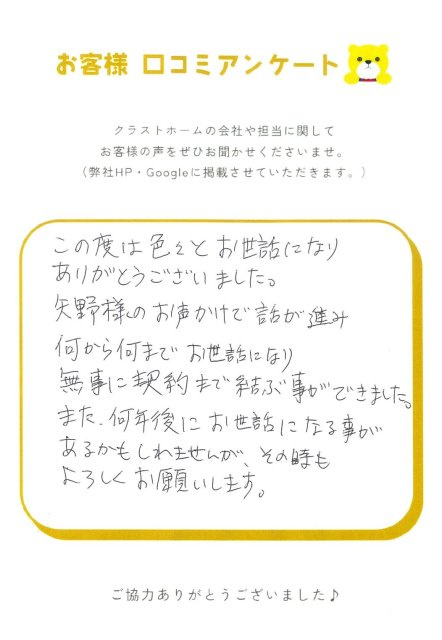 お客様 口コミアンケート
クラストホームの会社や担当に関して
お客様の声をぜひお聞かせくださいませ。
(弊社HP・Googleに掲載させていただきます。)
この度は色々とお世話になり
ありがとうございました。
矢野様のお声かけで話が進み
何から何までお世話になり
無事に契約まで結ぶ事ができました。
また、何年後にお世話になる事が
あるかもしれませんが、その時も
よろしくお願いします。
ご協力ありがとうございました♪